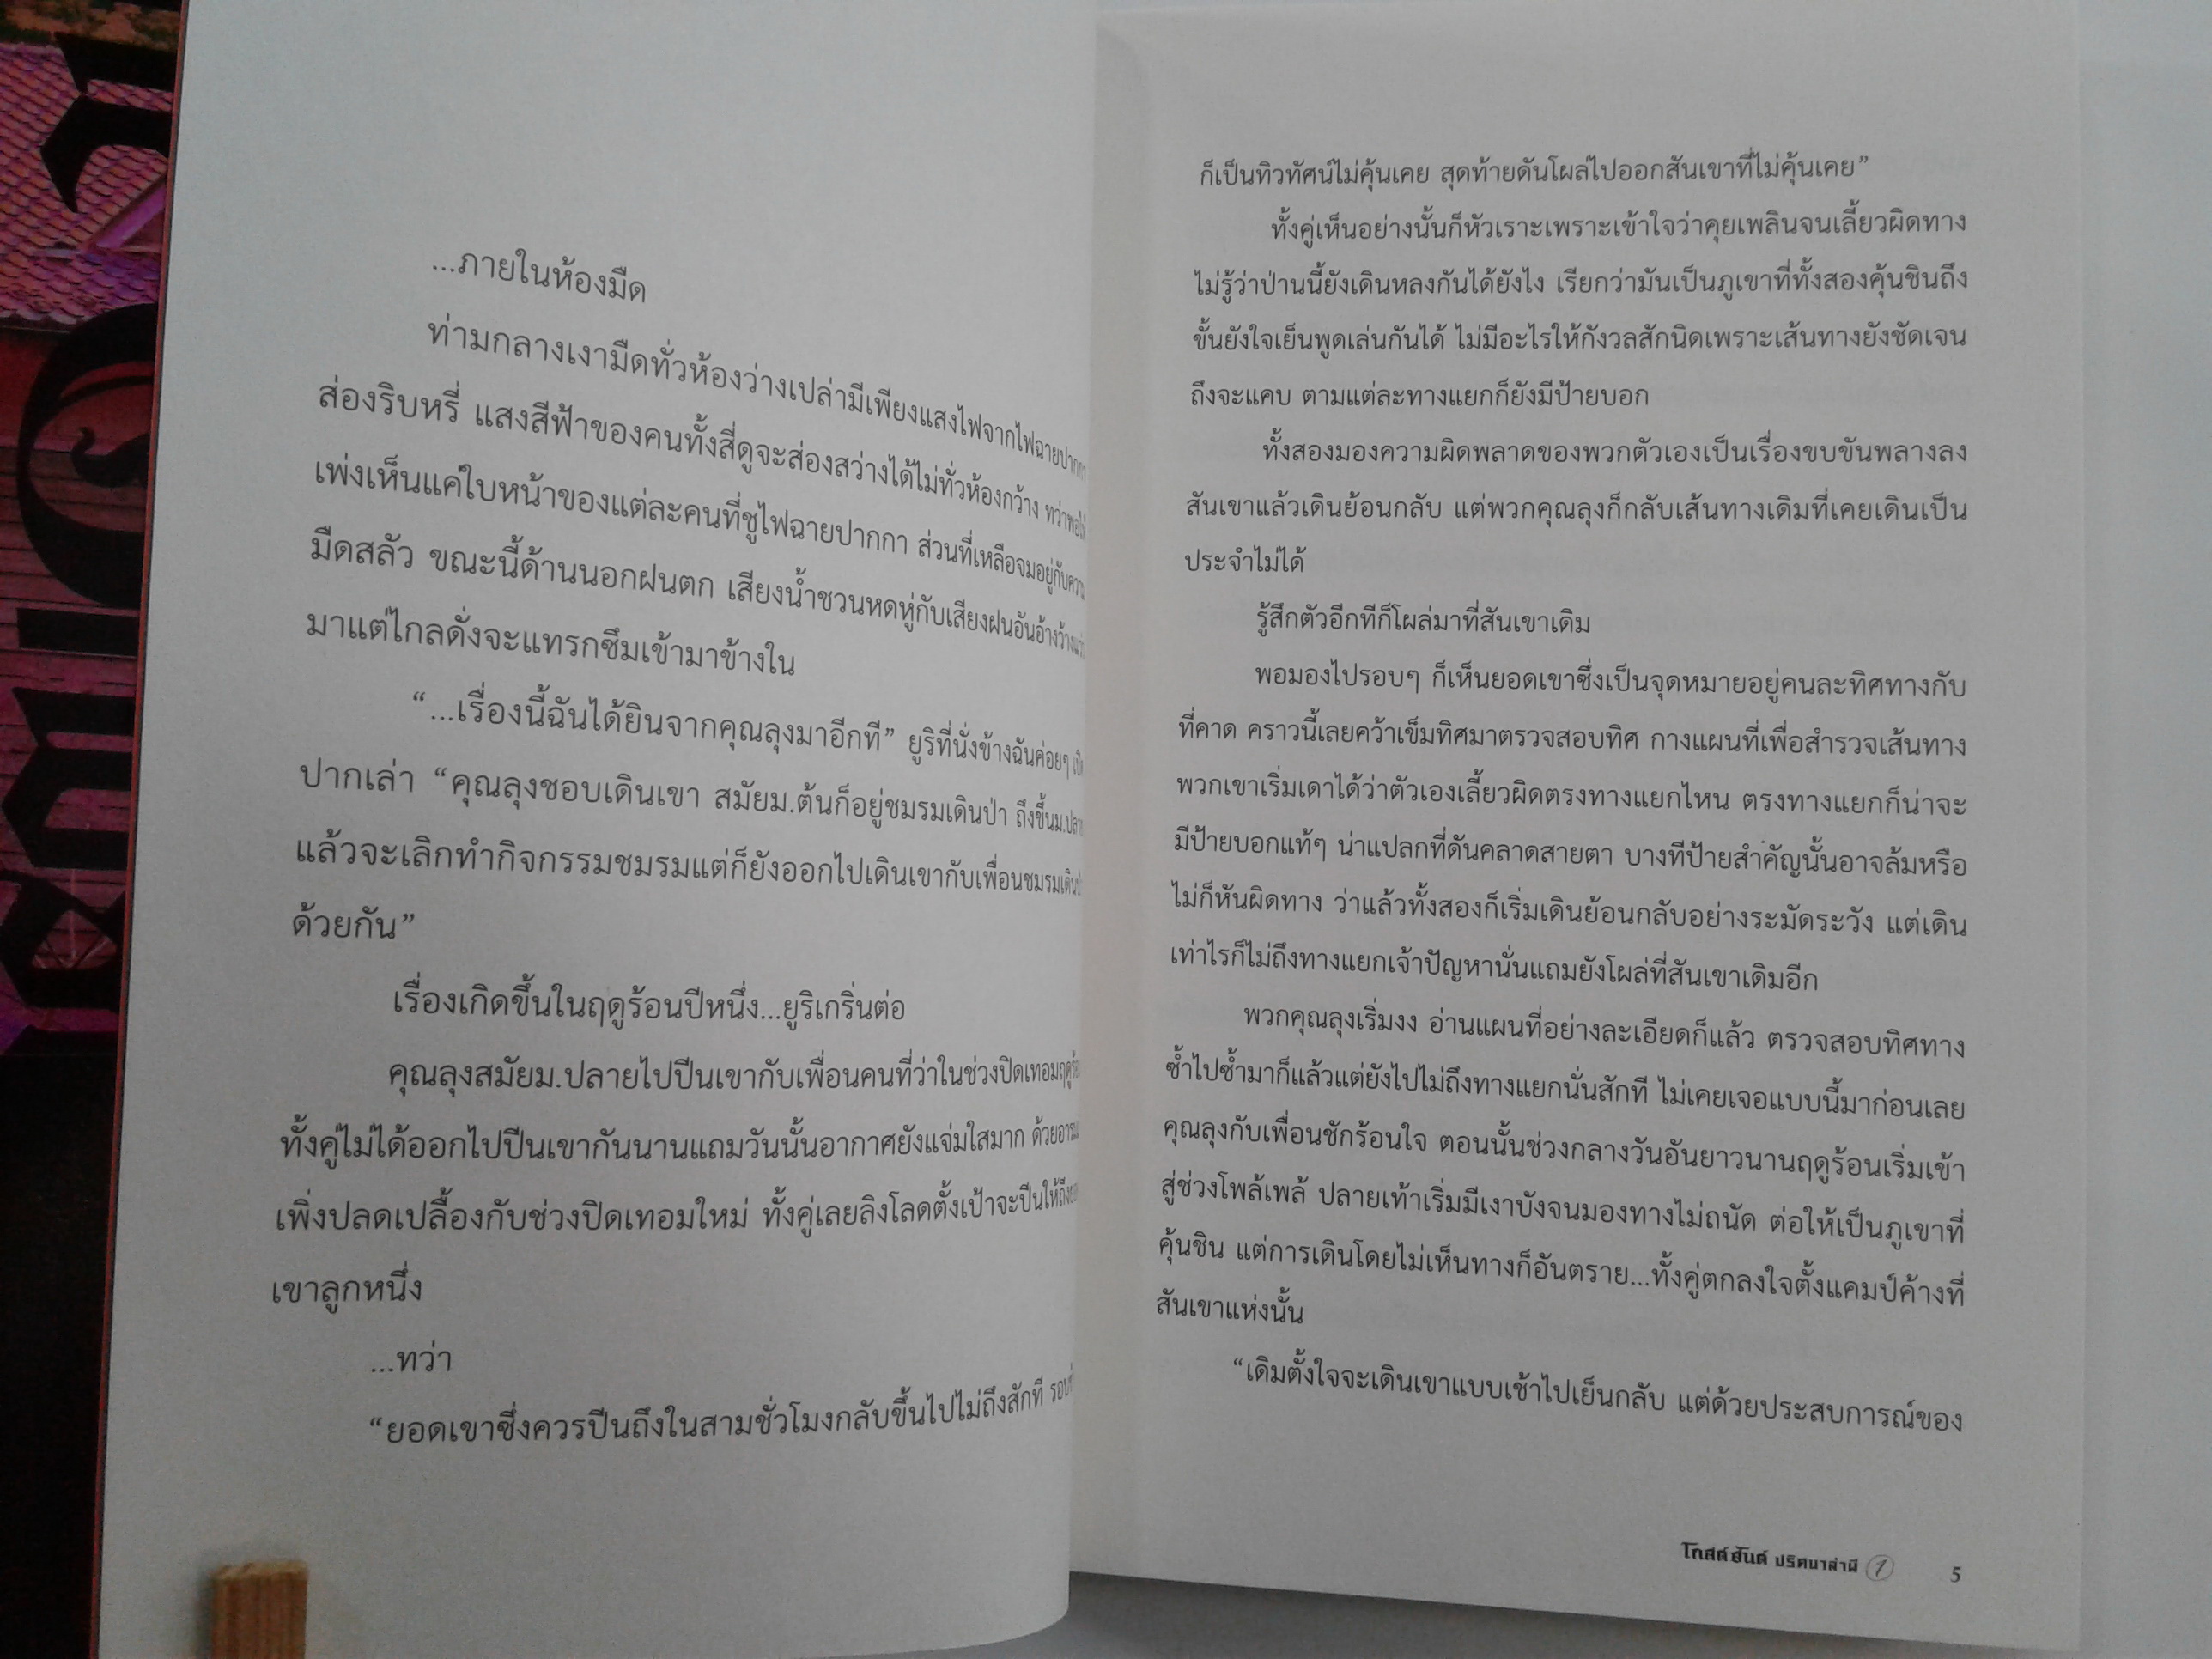 ...ภายในห้องมืด
ท่ามกลางเงามืดทั่วห้องว่างเปล่ามีเพียงแสงไฟจากไฟฉายปากกา
ส่องริบหรี่ แสงสีฟ้าของคนทั้งสี่ดูจะส่องสว่างได้ไม่ทั่วห้องกว้าง ทว่าพอให้
เพ่งเห็นแค่ใบหน้าของแต่ละคนที่ชูไฟฉายปากกา ส่วนที่เหลือจมอยู่กับความ
มืดสลัว ขณะนี้ด้านนอกฝนตก เสียงน้ำชวนหดหู่กับเสียงฝนอันอ้างว้าง
มาแต่ไกลดั่งจะแทรกซึมเข้ามาข้างใน
“...เรื่องนี้ฉันได้ยินจากคุณลุงมาอีกที” ยูริที่นั่งข้างฉันค่อยๆ
ปากเล่า “คุณลุงชอบเดินเขา สมัยม.ต้นก็อยู่ชมรมเดินป่า ถึงขึ้นม.ปลาย
แล้วจะเลิกทำกิจกรรมชมรมแต่ก็ยังออกไปเดินเขากับเพื่อนชมรมเดินป่า
ด้วยกัน”
เรื่องเกิดขึ้นในฤดูร้อนปีหนึ่ง...ยูริเกริ่นต่อ
คุณลุงสมัยม.ปลายไปปีนเขากับเพื่อนคนที่ว่าในช่วงปิดเทอมฤดูร้อน
ทั้งคู่ไม่ได้ออกไปปีนเขากันนานแถมวันนั้นอากาศยังแจ่มใสมาก ด้วย
เพิ่งปลดเปลื้องกับช่วงปิดเทอมใหม่ ทั้งคู่เลยลิงโลดตั้งเป้าจะปีนให้ถึง
เขาลูกหนึ่ง
...ทว่า
“ยอดเขาซึ่งควรปีนถึงในสามชั่วโมงกลับขึ้นไปไม่ถึงสักที
ก็เป็นทิวทัศน์ไม่คุ้นเคย สุดท้ายดันโผล่ไปออกสันเขาที่ไม่คุ้นเคย”
ทั้งคู่เห็นอย่างนั้นก็หัวเราะเพราะเข้าใจว่าคุยเพลินจนเลี้ยวผิดทาง
ไม่รู้ว่าป่านนี้ยังเดินหลงกันได้ยังไง เรียกว่ามันเป็นภูเขาที่ทั้งสองคุ้นชินถึง
ขั้นยังใจเย็นพูดเล่นกันได้ ไม่มีอะไรให้กังวลสักนิดเพราะเส้นทางยังชัดเจน
ถึงจะแคบ ตามแต่ละทางแยกก็ยังมีป้ายบอก
ทั้งสองมองความผิดพลาดของพวกตัวเองเป็นเรื่องขบขันพลางลง
สันเขาแล้วเดินย้อนกลับ แต่พวกคุณลุงก็กลับเส้นทางเดิมที่เคยเดินเป็น
ประจำไม่ได้
รู้สึกตัวอีกทีก็โผล่มาที่สันเขาเดิม
พอมองไปรอบๆ ก็เห็นยอดเขาซึ่งเป็นจุดหมายอยู่คนละทิศทางกับ
ที่คาด คราวนี้เลยคว้าเข็มทิศมาตรวจสอบทิศ กางแผนที่เพื่อสำรวจเส้นทาง
พวกเขาเริ่มเดาได้ว่าตัวเองเลี้ยวผิดตรงทางแยกไหน ตรงทางแยกก็น่าจะ
มีป้ายบอกแท้ๆ น่าแปลกที่ดันคลาดสายตา บางทีป้ายสำคัญนั้นอาจล้มหรือ
ไม่ก็หันผิดทาง ว่าแล้วทั้งสองก็เริ่มเดินย้อนกลับอย่างระมัดระวัง แต่เดิน
เท่าไรก็ไม่ถึงทางแยกเจ้าปัญหานั่นแถมยังโผล่ที่สันเขาเดิมอีก
พวกคุณลุงเริ่มงง อ่านแผนที่อย่างละเอียดก็แล้ว ตรวจสอบทิศทาง
ซ้ำไปซ้ำมาก็แล้วแต่ยังไปไม่ถึงทางแยกนั่นสักที ไม่เคยเจอแบบนี้มาก่อนเลย
คุณลุงกับเพื่อนชักร้อนใจ ตอนนั้นช่วงกลางวันอันยาวนานฤดูร้อนเริ่มเข้า
สู่ช่วงโพล้เพล้ ปลายเท้าเริ่มมีเงาบังจนมองทางไม่ถนัด ต่อให้เป็นภูเขาที่
คุ้นชิน แต่การเดินโดยไม่เห็นทางก็อันตราย...ทั้งคู่ตกลงใจตั้งแคมป์ค้างที่
สันเขาแห่งนั้น
“เดิมตั้งใจจะเดินเขาแบบเช้าไปเย็นกลับ แต่ด้วยประสบการณ์ของ
โกสต์ฮันต์ ปริศนาล่าผี 1 5